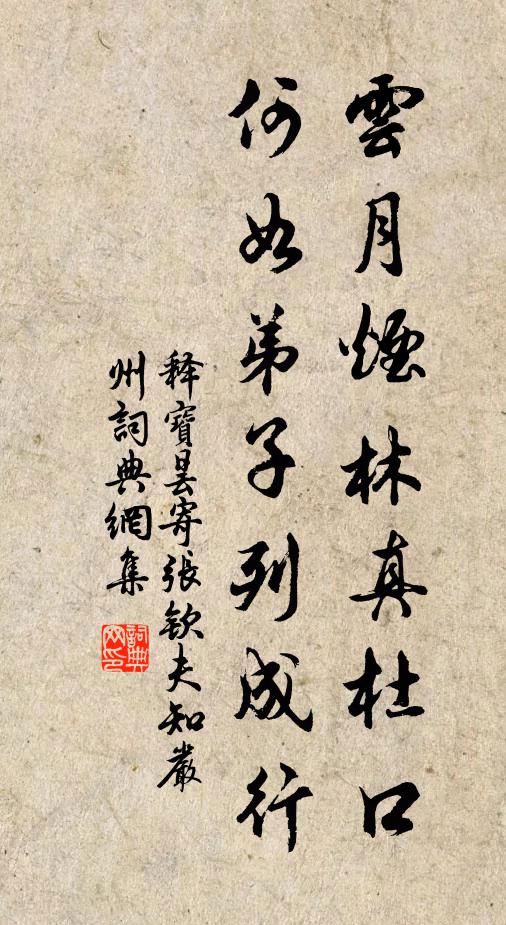 雲月煙林真杜口
何如弟子列成行
釋寶曇寄張欽夫知嚴
州詞典網集
詞典
网印